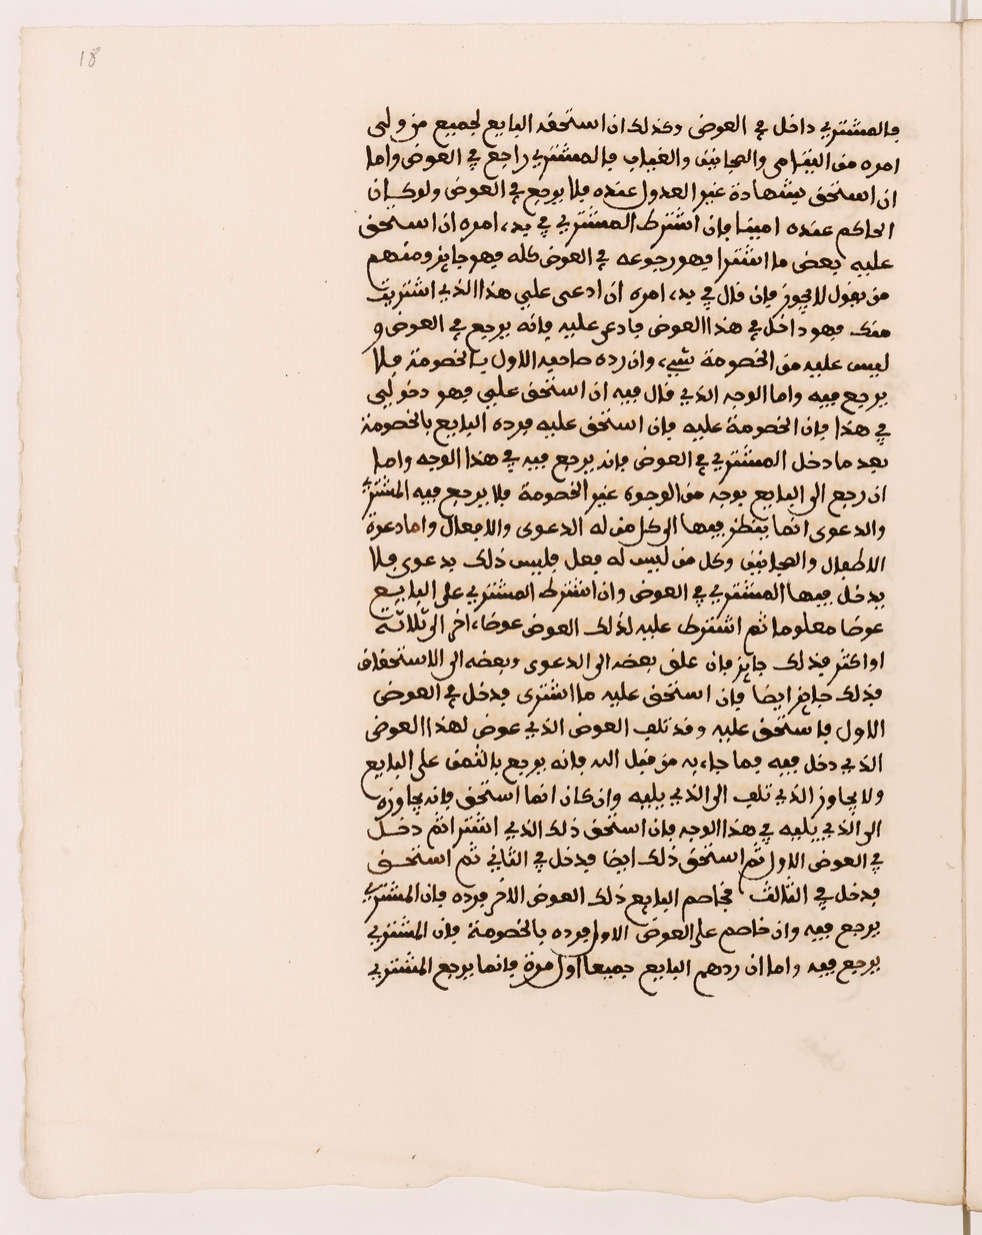 18
فالمشتري داخل في العوض وكذلك ان استحقه البايع لجميع من ولى
امره من اليتامى والمجانين والغياب فالمشتري راجع في العوض واما
ان استحق بشهادة غير العدول عنده فلا يرجع في العوض ولو كان
الحاكم عنده امينا فان اشترط المشتري في بدء امره ان استحق
عليه بعض ما اشترا فهو رجوعه في العوض كله فهو جايز ومنهم
من يقول لا يجوز فان قال في بدء امره ان ادعى علي هذا الذي اشتريت
منك فهو داخل في هذا العوض فادعى عليه فانه يرجع في العوض و
ليس عليه من الخصومة شيء وان رده صاحبه الاول بالخصومة فلا
يرجع فيه واما الوجه الذي قال فيه ان استحق علي فهو دخولي
في هذا فان الخصومة عليه فان استحق عليه فرده البايع بالخصومة
بعد ما دخل المشتري في العوض فانه يرجع فيه في هذا الوجه واما
ان رجع الى البايع بوجه من الوجوه غير الخصومة فلا يرجع فيه المشتري
والدعوى انما ينظر فيها الى كل من له الدعوى والافعال واما دعوة
الاطفال والمجانين وكل من ليس له فعل فليس ذلك بدعوى فلا
يدخل فيها المشتري في العوض وان اشترط المشتري على البايع
عوضا معلوما ثم اشترط عليه لذلك العوض عوضا ءاخر الى ثلاثة
او اكثر فذلك جايز فان علق بعضه الى الدعوى وبعضه الى الاستحقاق
فذلك جايز ايضا فان استحق عليه ما اشترى فدخل في العوض
الاول فاستحق عليه وقد تلف العوض الذي عوض لهذا العوض
الذي دخل فيه فما جاء به من قبل الله فانه يرجع بالثمن على البايع
ولا يجاوز الذي تلف الى الذي يليه وان كان انما استحق فانه يجاوزه
الى الذي يليه في هذا الوجه فان استحق ذلك الذي اشترا ثم دخل
في العوض الاول ثم استحق ذلك ايضا فدخل في الثاني ثم استحق
فدخل في الثالث فخاصم البايع ذلك العوض الاخر فرده فان المشتري
يرجع فيه وان خاصم على العوض الاول فرده بالخصومة فان المشتري
يرجع فيه واما ان ردهم البايع جميعا اول مرة فانما يرجع المشتري